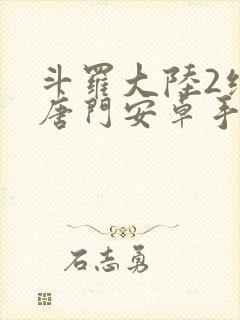 斗羅大陸2
唐門安卓手
石志勇